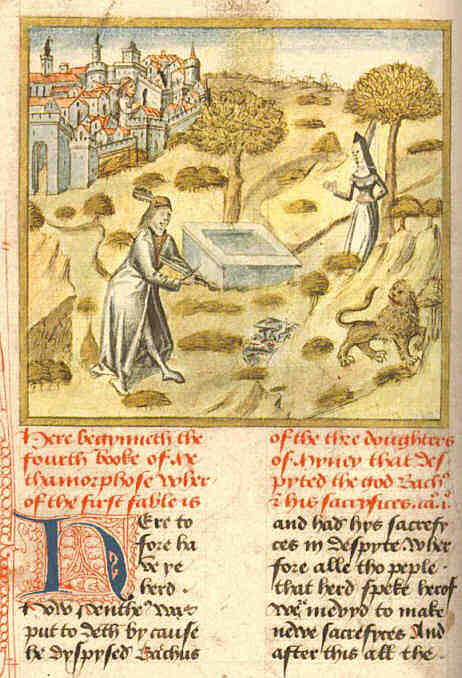 Here begynneth the
fourth booke of Me
thamorphose wher
of the first fable is
of the thre doughters
of Myney that des
pyted the god Bachus
& his sacryfices. ca. i.
Here to
fore ha
ve ye
herd
How Pentheus was
put to deth by cause
he dyspysed Bachus
and had hys sacrefy
ces in despyte. Wher
fore alle the peple
that herd speke herof
were mevyd to make
newe sacrefyces And
after this all the